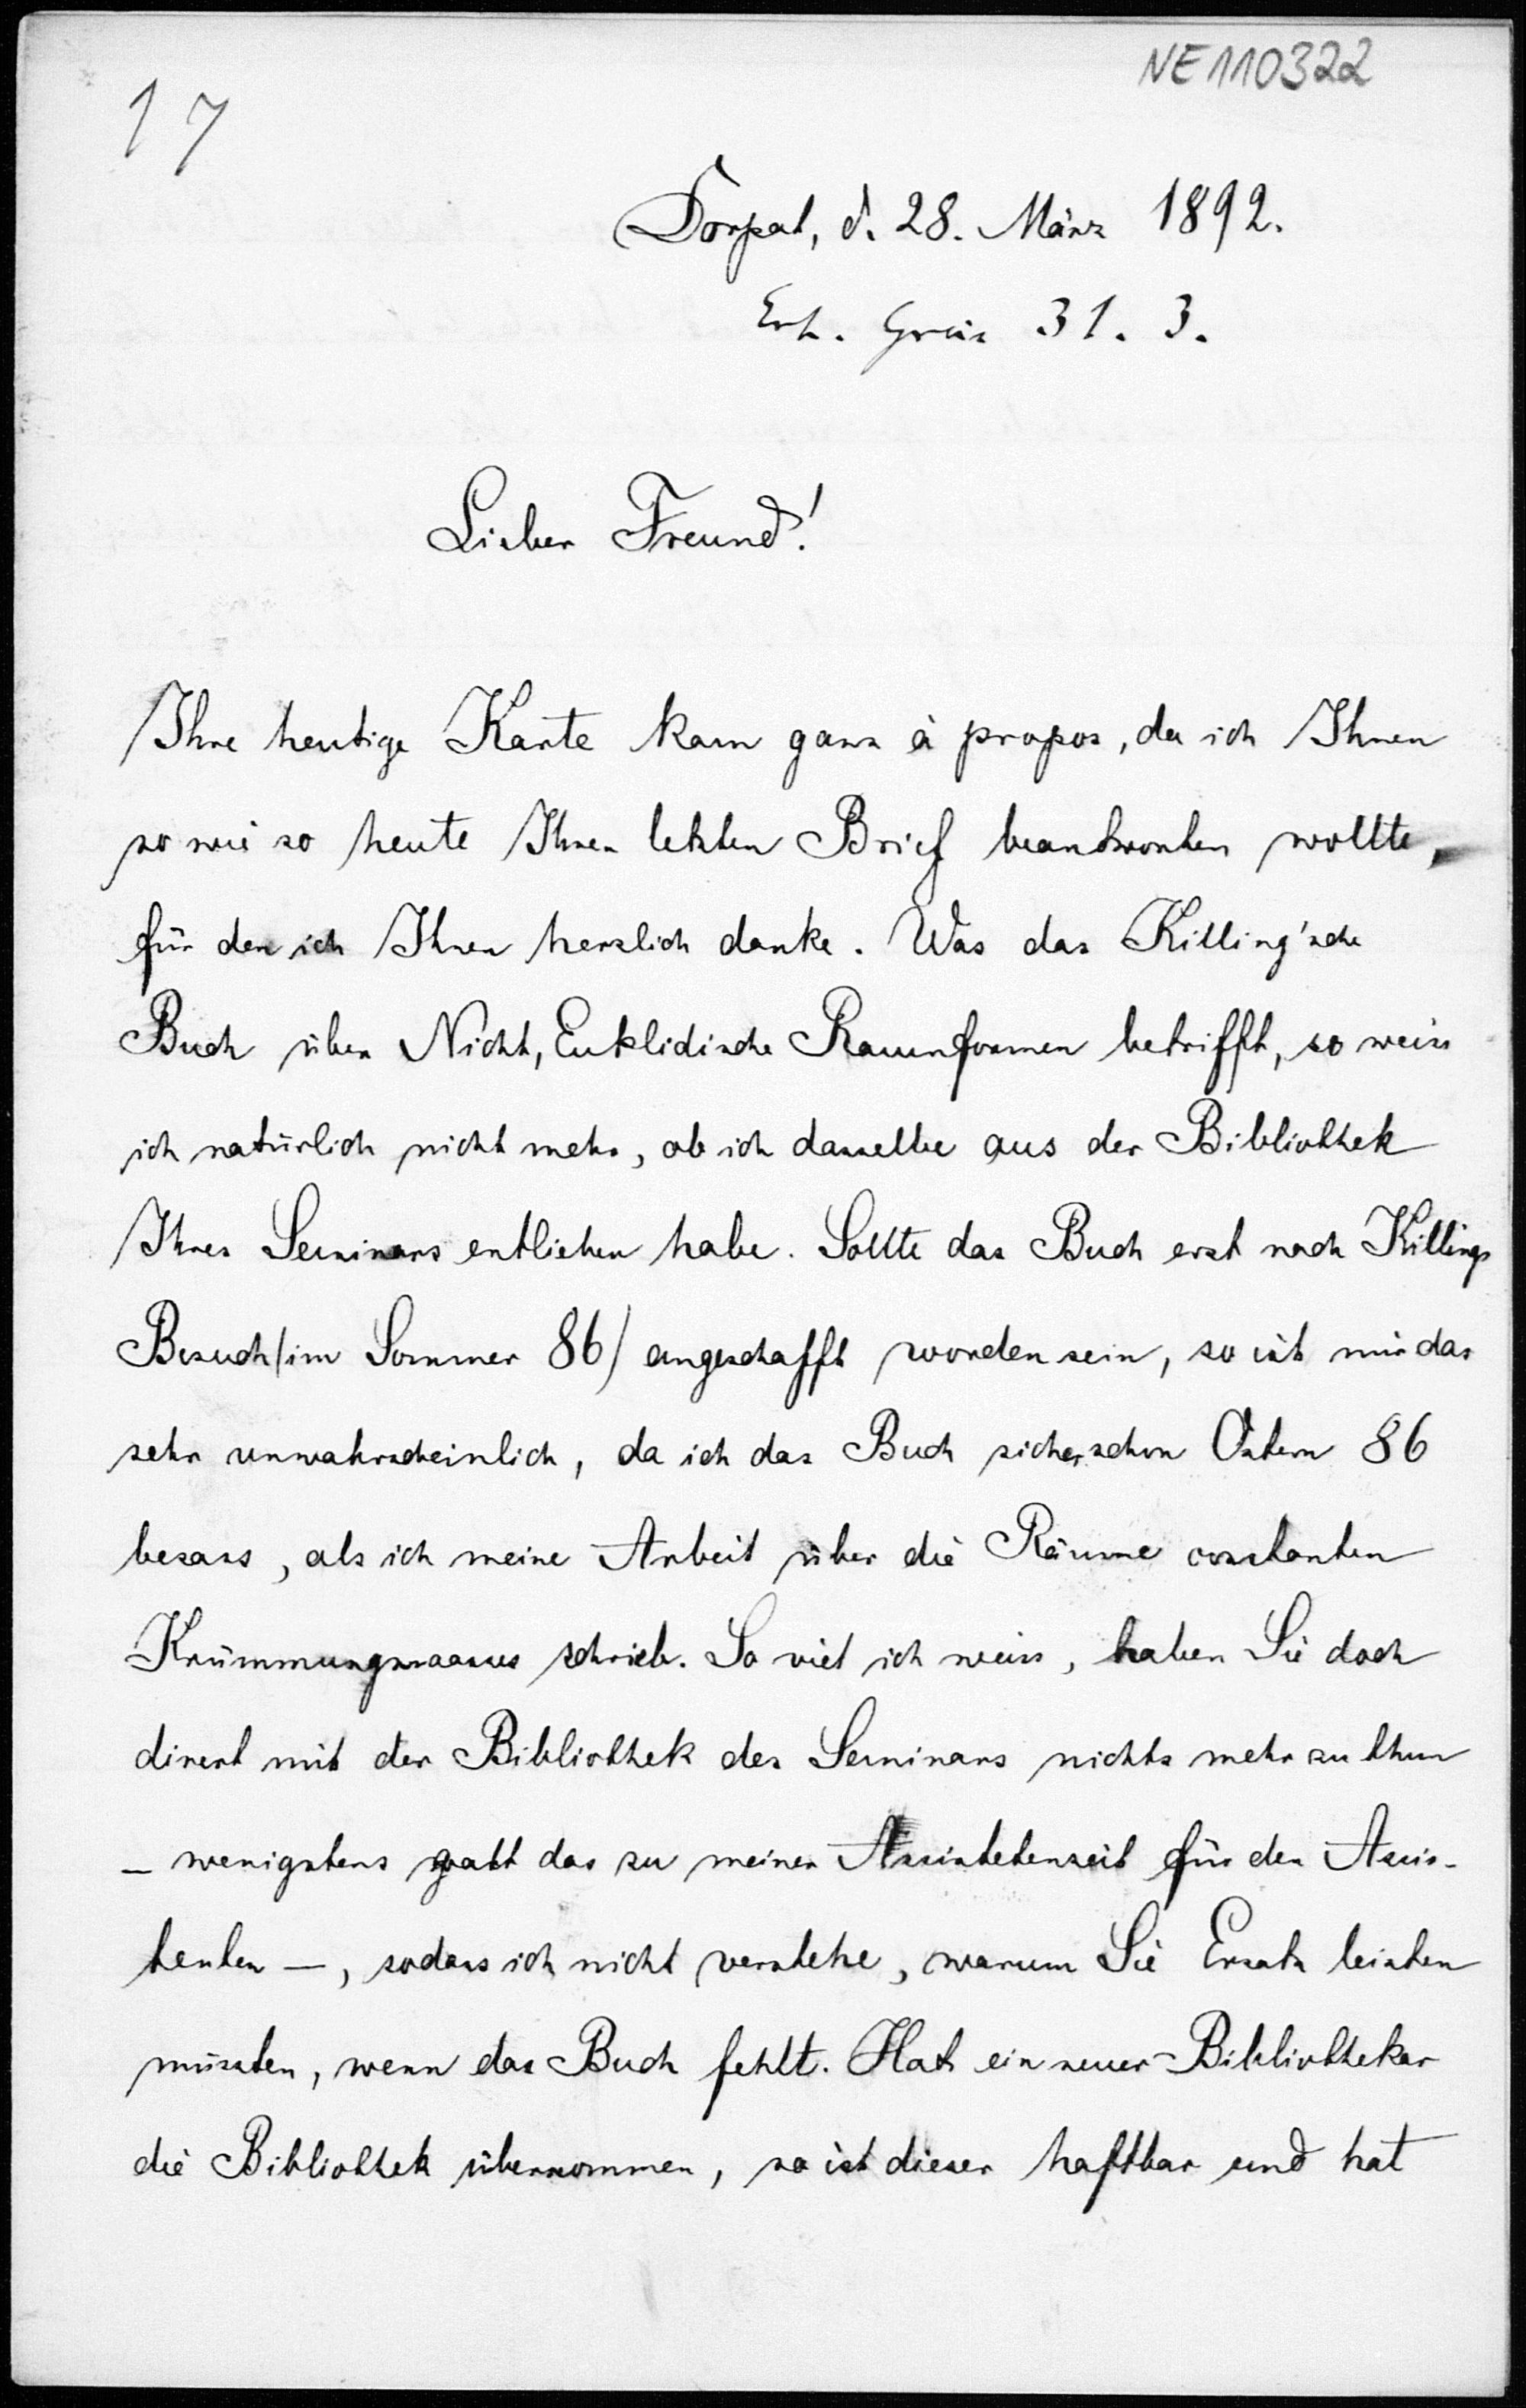 NE110322
17
Dorpat, d. 28. März 1892.
Erh. 31. 3.
Lieber Freund!
Ihre heutige Karte kam ganz à propos, da ich Ihnen
so wie so heute Ihren letzten Brief beantworten wollte,
für den ich Ihnen herzlich danke. Was das Killing'sche
Buch über Nicht, Euklidische Raumformen betrifft, so weiss
ich natürlich nicht mehr, ob ich dasselbe aus der Bibliothek
Ihres Seminars entliehen habe. Sollte das Buch erst nach Killings
Besuch (im Sommer 86) angeschafft worden sein, so ist mir das
sehr unwahrscheinlich, da ich das Buch sicher schon Ostern 86
besass, als ich meine Arbeit über die Räume constanten
Krümmungsmaasses schrieb. So viel ich weiss, haben Sie doch
direct mit der Bibliothek des Seminars nichts mehr zu thun
— wenigstens galt das zu meiner Assistetenzeit für den Assis-
tenten —, sodass ich nicht verstehe, warum Sie Ersatz leisten
müssten, wenn das Buch fehlt. Hat ein neuer Bibliothekar
die Bibliothek übernommen, so ist dieser haftbar und hat